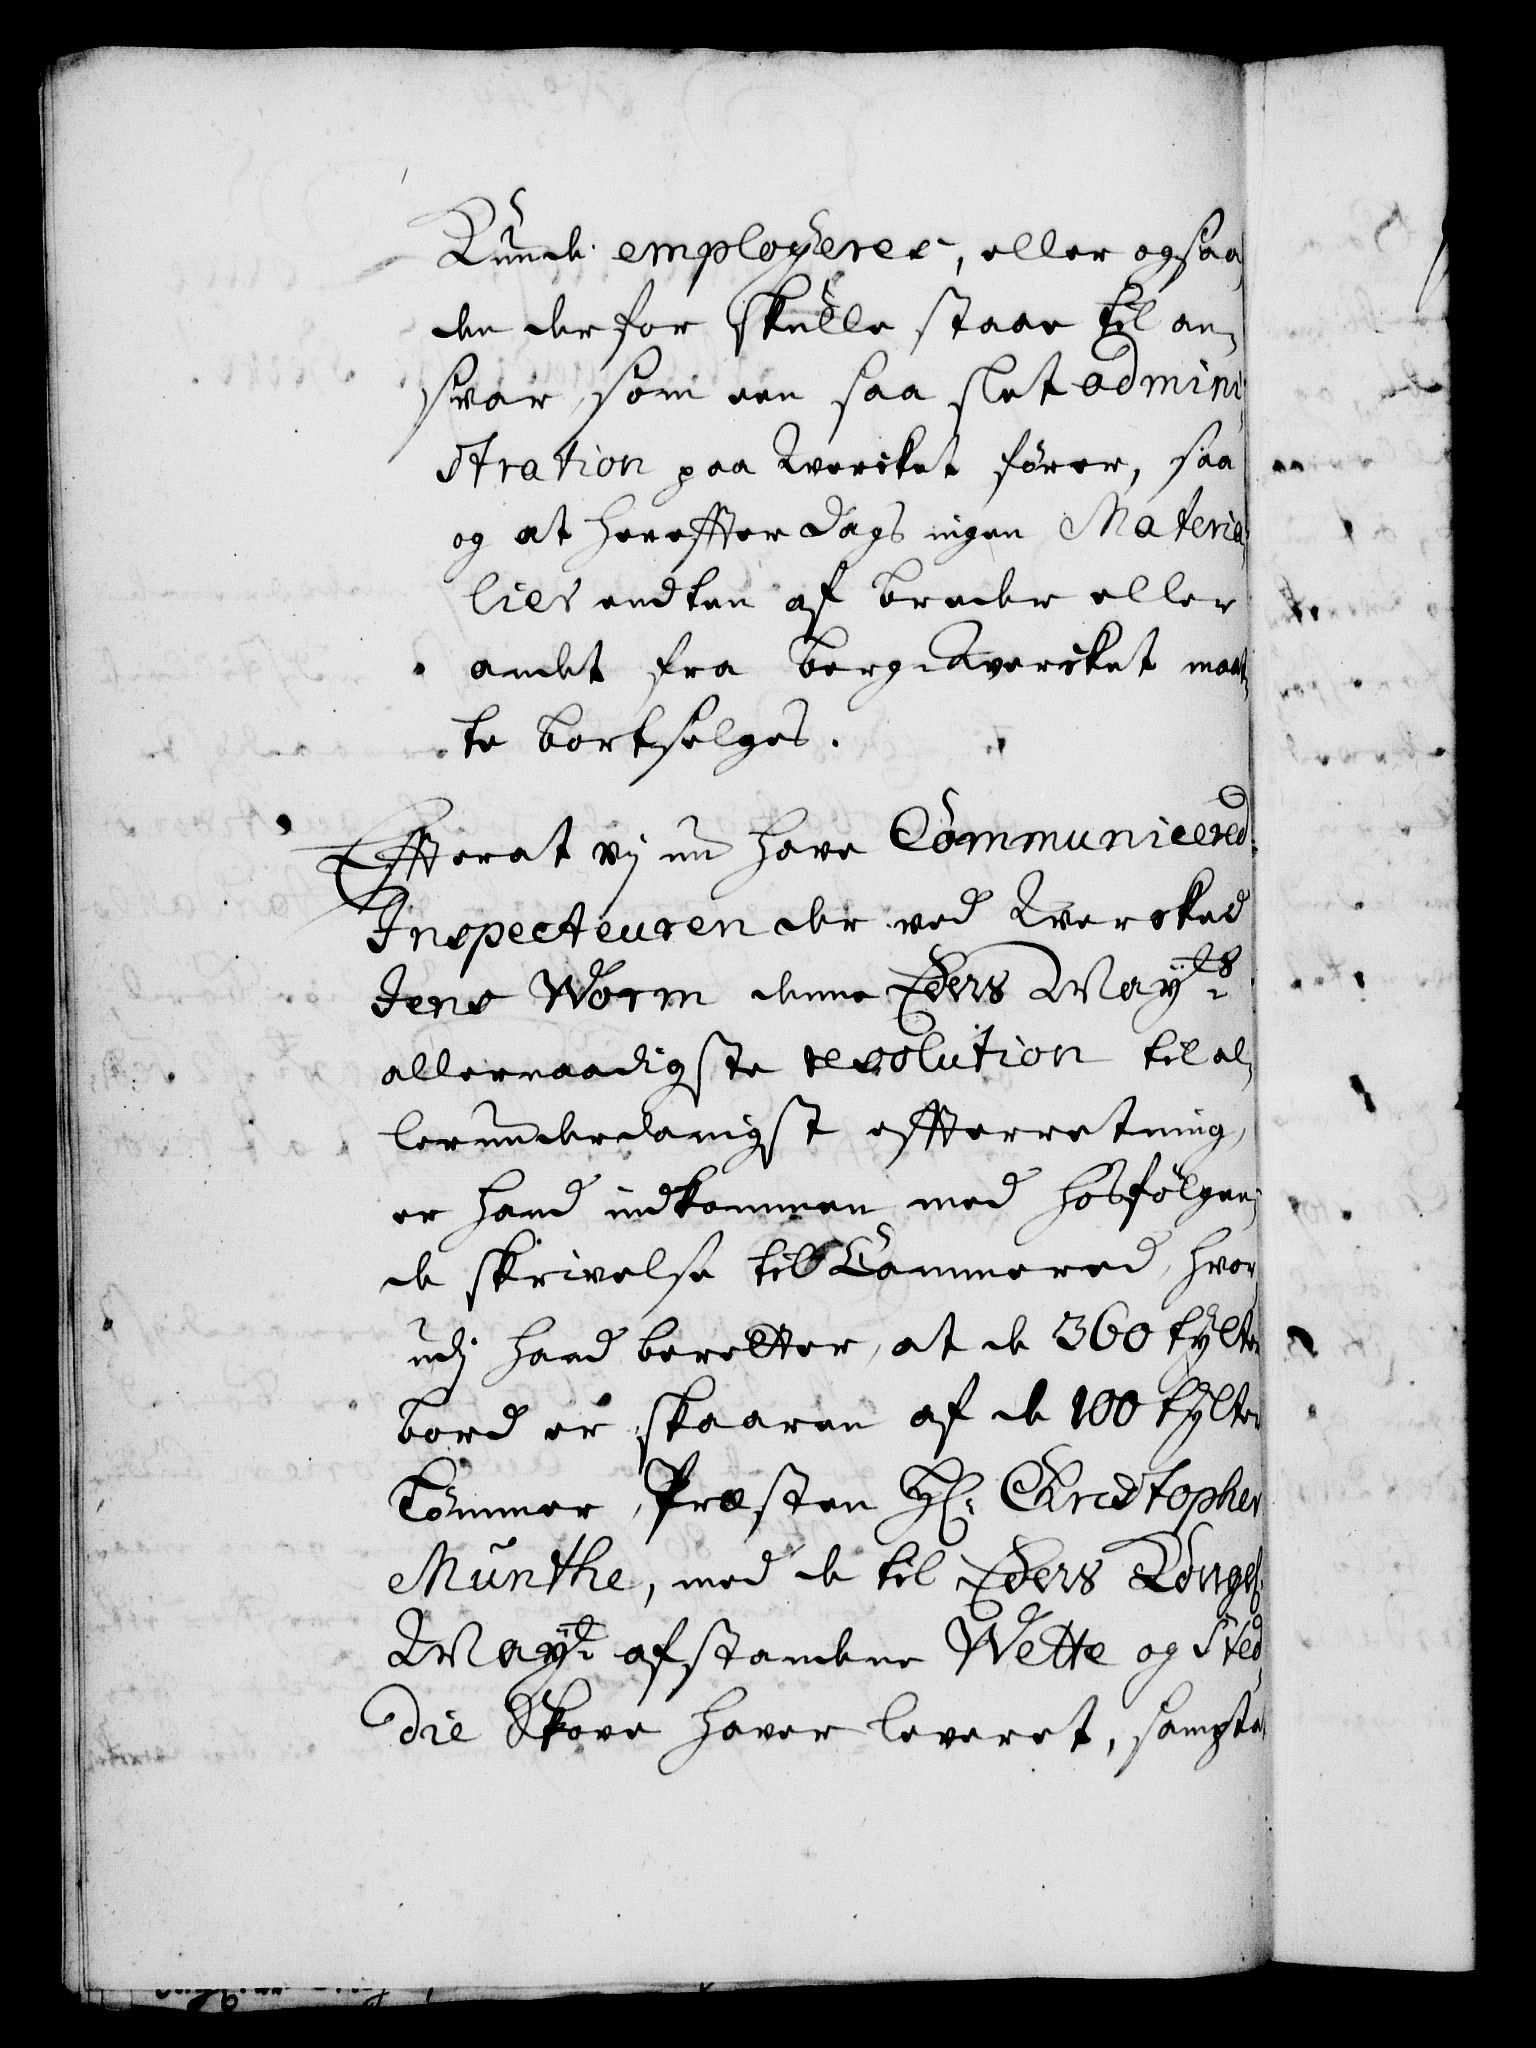 Kunde employeres, eller ogsaa
den derfor skulle staae til an-
svar, som een saa slet admini-
stration paa Werket fører, saa
og at hereffter dags ingen Materia-
lier endten af breder eller
andet fra bergwerket maat-
te bortselges.
Effterat vj nu have Communicered
Inspecteuren der ved Werked
Jens Worm denne Eders Mayts
allernaadigste resolution til al-
lerunderdanigst effterretning,
er hand indkommen med hosfølgen-
de skrivelse til Cammered, hvor
udj hand beretter, at de 360 tylter
bord er skaaren af de 100 tylter
tømmer, Præsten Hr: Christopher
Munthe, med de til Eders Kongel:
Mayt: afstandene Wette og Sted-
die Skove haver leveret, sampt at